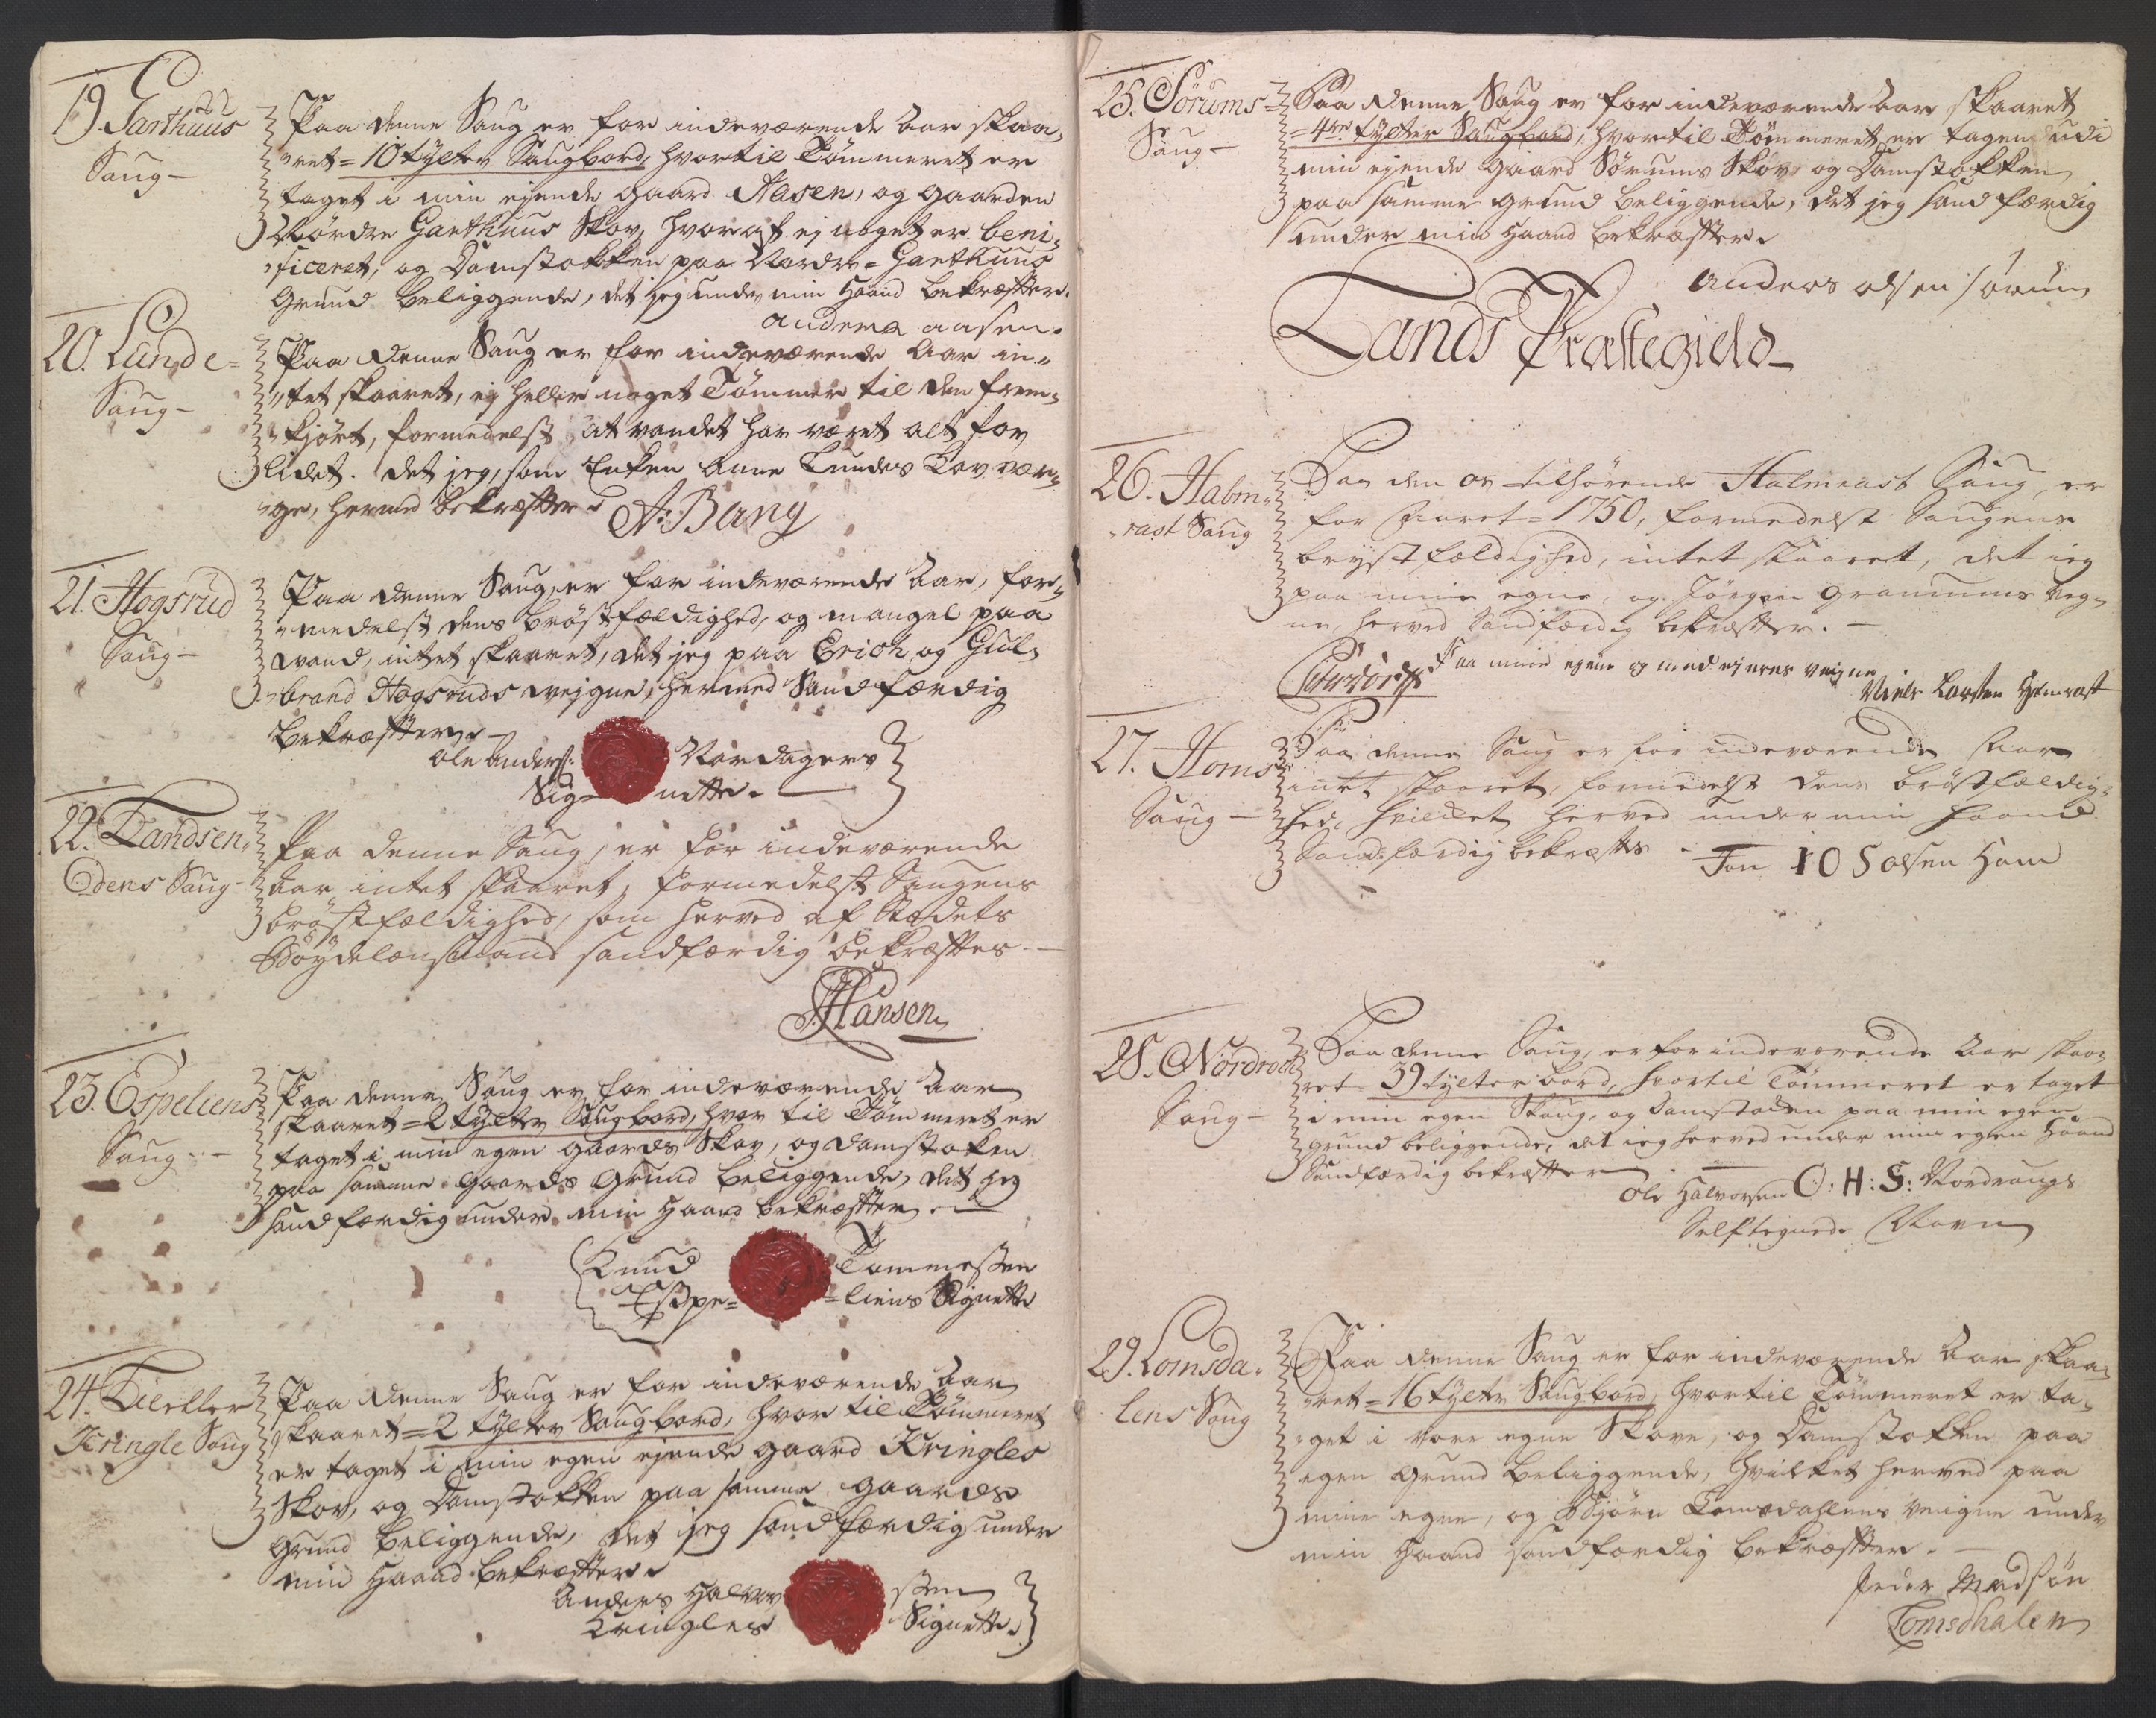 19. Garthuus
Saug-
Paa denne Saug er for indeværende Aar skaa-
ret = 10 tylter Saugbord, hvortil Tømmeret er
taget i min ejende gaard Aasen, og gaarden
Nordre Garthuus Skov, hvoraf ej noget er beni-
ficeret, og Damstokken paa Nordre = Garthuus
Grund beliggende, det jeg under min Haand bekræfter.
anders aasen.
20. Lunde =
Saug-
Paa denne Saug er for indeværende Aar in-
tet skaaret, ej heller noget Tømmer til den frem-
kjørt, formedelst at vandet har været alt for
lidet. det jeg, som Enken Anne Lundes Lavvær-
ge, hermed bekræfter
A: Bang
21. Hogsrud
Saug-
Paa denne Saug, er for indeværende Aar, for-
medelst dens brøstfældighed, og mangel paa
vand, intet skaaret, det jeg paa Erich og Gul-
brand Hogsruds vejgne, hermed Sandfærdig
bekræfter
Ole Anders: Nordagers
Sig- nette.
22. Landsen-
dens Saug-
Paa denne Saug, er for indeværende
Aar intet skaaret, formedelst Saugens
brøstfældighed, som herved af Stædets
Bøydelænsmand sandfærdig bekræftes.
Hansen
23. Espeliens
Saug-
Paa denne Saug er for indeværende Aar
skaaret = 2 tylter Saugbord, hvor til Tømmeret er
taget i min egen gaards Skov, og damstoken
paa samme gaards Grund beliggende, det jeg
sandfærdig under min Haand bekræfter
Knud Tommessen
Esspe = = liens Signette
24.
Kringle Saug
Paa denne Saug er for indeværende Aar
skaaret = 2 tylter Saugbord, hvor til Tømmeret
er taget i min egen ejende gaard Kringles
Skov, og Damstokken paa samme gaards
Grund beliggende, det jeg sandfærdig under
min Haand bekræfter
Anders Halvor ssen
Kringles Signette
25. Sørums =
Saug-
Paa denne Saug er for indeværende Aar skaaret
= 4re tylter Saugbord, hvortil Tømmeret er tagen udi
min ejende gaard Sørums Skov, og Damstokken
paa samme grund beliggende, det jeg sandfærdig
under min Haand bekræfter
anders olsen sørum
Lands Præstegield
26. Halm-
rast Saug
Paa den os tilhørende Halmrast Saug, er
for Aaret = 1750, formedelst Saugens
brystfældighed, intet skaaret, det ieg
paa mine egne, og Jørgen Granums veg-
ne, herved Sandfærdig bekræfter.
Paa mine egene og med ejeres veigne
Niels Larsen Hamrast
27. Homs
Saug-
Paa denne Saug er for indeværende Aar
intet skaaret, formedelst dens brøstfældig-
hed, hvilket herved under min Haand
Sandfærdig bekræftes.
Jon IOS olsen Hom
28. Nordroch
Saug-
Paa denne Saug, er for indeværende Aar skaa-
ret 39 tylter bord, hvortil Tømmeret er taget
i min egen Skoug, og Damstoken paa min egen
grund beliggende, det ieg herved under min egen Haand
Sandfærdig bekræfter
Ole Halvorsen O: H: S: Nordraags
Selftegnede Navn
29. Lomsda-
lens Saug
Paa denne Saug er for indeværende Aar skaa-
ret = 16 tylter Saugbord, hvortil Tømmeret er ta-
get i vore egne Skove, og Damstokken paa
egen grund beliggende, hvilket herved paa
mine egne, og Biørn Lomsdahlens veigne under
min Haand sandfærdig bekræfter.
Peder Madsøn
Lomsdhalen